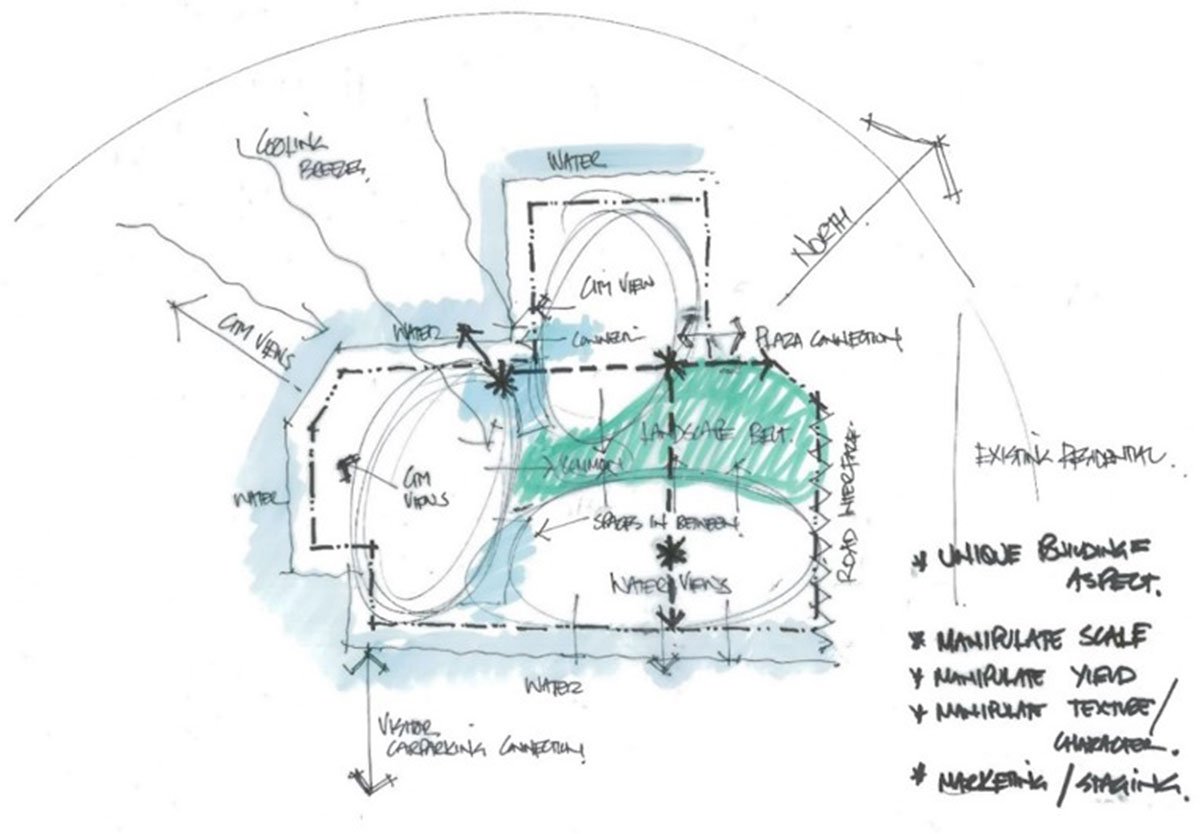 COOLING
BREEZES.
WATER
NORTH
CITY VIEW
CITY VIEWS
WATER
CONNECT
PLAZA CONNECTION
LANDSCAPE BELT.
ROAD INTERFACE.
EXISTING RESIDENTIAL.
COMMON
CITY
VIEWS
WATER
SPACES IN BETWEEN
WATER VIEWS
WATER
VISITOR
CARPARKING CONNECTION
* UNIQUE BUILDING =
ASPECT.
* MANIPULATE SCALE
* MANIPULATE YIELD
* MANIPULATE TEXTURE/
CHARACTER.
* MARKETING / STAGING.